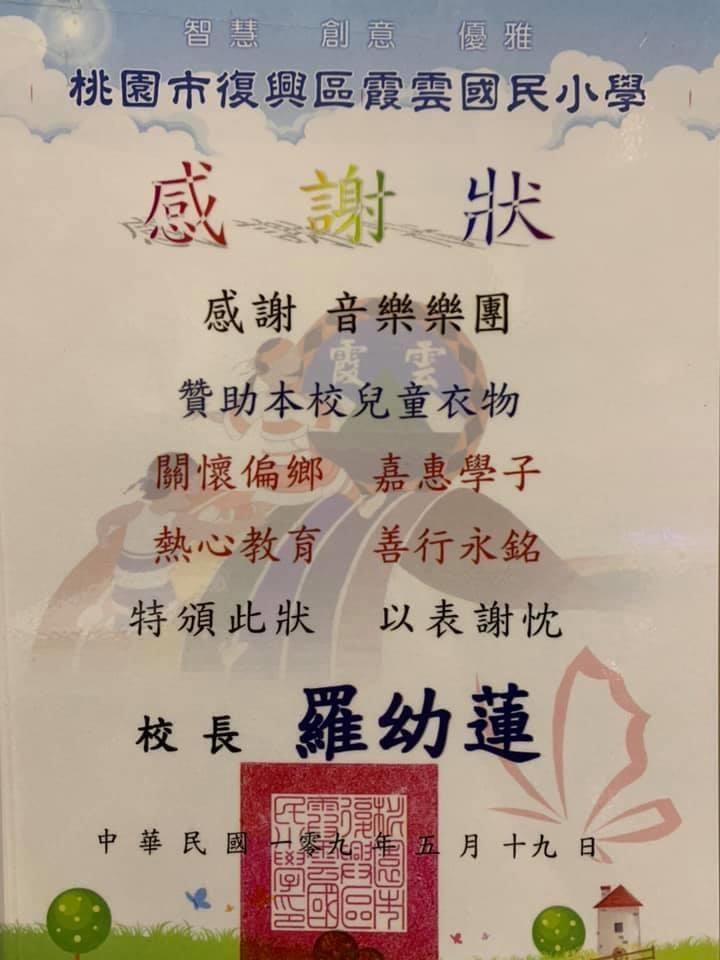 智慧 創意 優雅
桃園市復興區霞雲國民小學
感謝狀
感謝 音樂樂團
霞雲
贊助本校兒童衣物
關懷偏鄉 嘉惠學子
熱心教育 善行永銘
特頒此狀 以表謝忱
校長 羅幼蓮
中華民國一零九年五月十九日
桃園市
復興區
霞雲國
民小學印